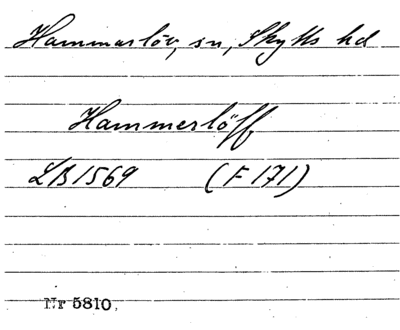 Hammarlöv, sn, Skytts hd
Hammerlöff
LB 1569 (F 171)
Nr 5810.